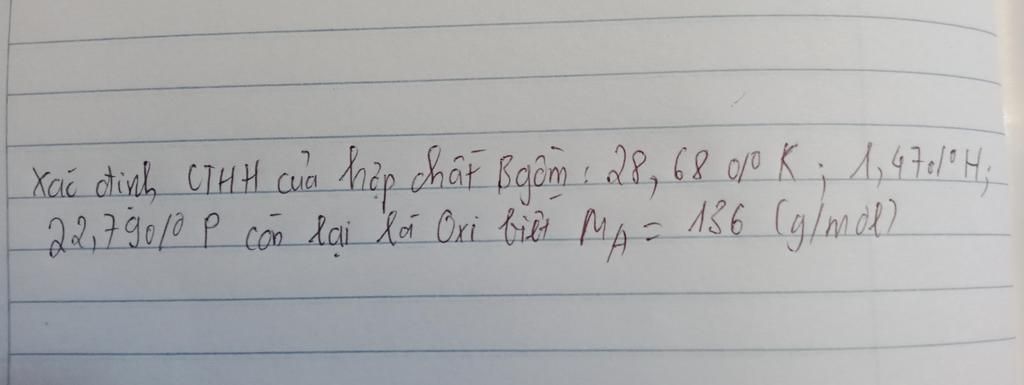 Xác định CTHH của hợp chất B gồm: 28,68 % K; 1,47% H;
22,79% P còn lại là Oxi biết MA = 136 (g/mol)